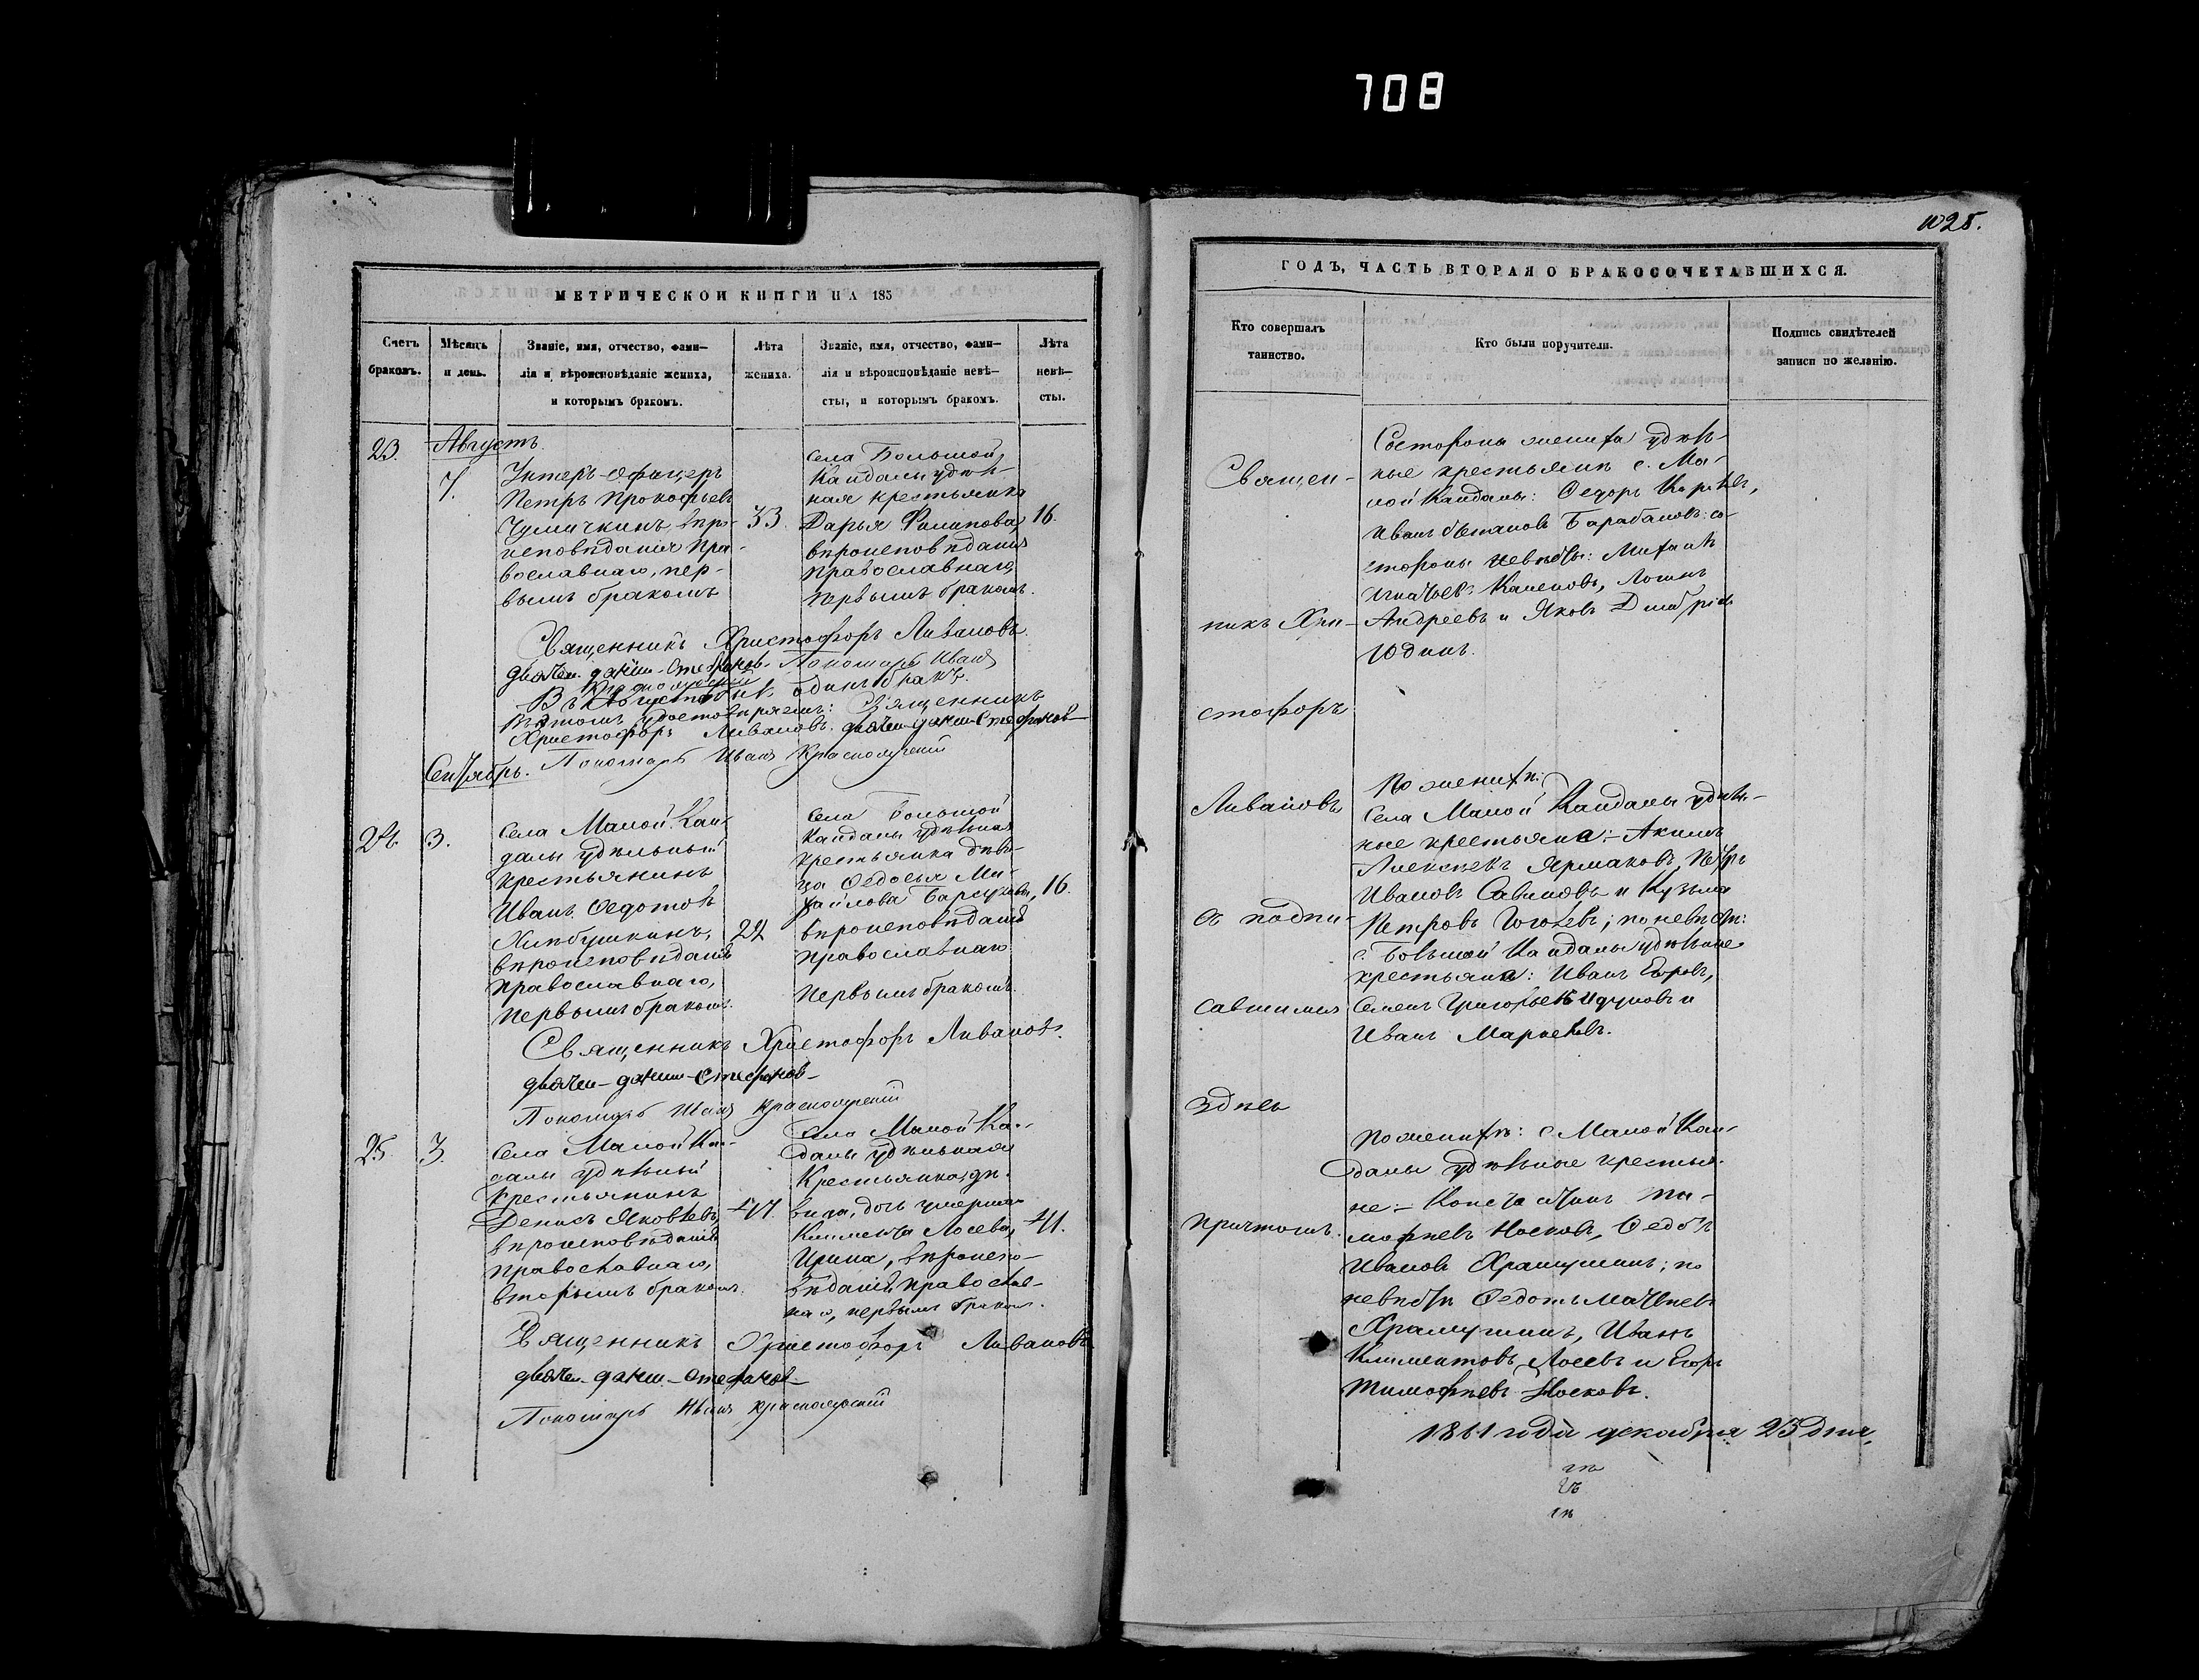 708
1028.
МЕТРИЧЕСКОЙ КНИГИ НА 185
Счетъ браковъ.
Мѣсяцъ и день.
Званіе, имя, отчество, фами-
лія и вѣроисповѣданіе жениха,
и которымъ бракомъ.
Лѣта жениха.
Званіе, имя, отчество, фами-
лія и вѣроисповѣданіе невѣ-
сты, и которымъ бракомъ.
Лѣта невѣ-
сты.
23.
Августъ
7.
Унтеръ-офицеръ
Петръ Прокофьевъ
Чумичкинъ вѣро-
исповѣданія Пра-
вославнаго, пер-
вымъ бракомъ
33.
села Большой
Кандалы удѣль-
ная крестьянка
Дарья Филипова
вѣроисповѣданія
православнаго,
первымъ бракомъ.
16.
Священникъ Христофоръ Ливановъ.
дьячек. Стефановъ. Пономарь Иванъ
Красносурский
Въ Августѣ одинъ бракъ.
Въ томъ удостовѣряемъ: Священникъ
Христофоръ Ливановъ. Стефановъ
Пономарь Иванъ
Сентябрь.
24.
3.
Села Малой Кан-
далы удѣльный
крестьянинъ
Иванъ Ѳедотовъ
Хлѣбушкинъ,
вѣроисповѣданія
православнаго,
первымъ бракомъ.
22
Села Большой
Кандалы удѣльная
крестьянка дѣви-
ца Ѳедосья Ми-
хайлова Барсукова,
вѣроисповѣданія
православнаго
первымъ бракомъ.
16.
Священникъ Христофоръ Ливановъ.
Стефановъ
Пономарь Иванъ
25.
3.
Села Малой Кан-
далы удѣльный
Крестьянинъ
Денисъ Яковлевъ,
вѣроисповѣданія
православнаго,
вторымъ бракомъ.
47.
Села Малой Кан-
далы удѣльная
Крестьянка, дѣ-
вица, дочь умершаго
Климента Лосева,
Ирина, вѣроиспо-
вѣданія православ-
наго, первымъ бракомъ.
41.
Священникъ Христофоръ Ливановъ
Стефановъ
Пономарь Иванъ
ГОДЪ, ЧАСТЬ ВТОРАЯ О БРАКОСОЧЕТАВШИХСЯ.
Кто совершалъ
таинство.
Кто были поручители.
Подпись свидѣтелей
записи по желанію.
Священ-
никъ Хри-
стофоръ
Ливановъ
съ подпи-
савшимся
здѣсь
причтомъ.
Со стороны жениха удѣль-
ные крестьяне с. Ма-
лой Кандалы: Ѳедоръ
Иванъ Степановъ Барабановъ: со
стороны невѣсты: Михаилъ
Игнатьевъ
Андреевъ и Яковъ Дмитріевъ
Юдинъ.
По женихѣ:
Села Малой Кандалы удѣль-
ные крестьяна: Акимъ
Алексѣевъ Ярмаковъ, Петръ
Ивановъ Савиновъ и Кузьма
Петровъ; по невѣстѣ:
с. Большой Кандалы удѣльные
крестьяна: Иванъ Егоровъ,
Семенъ Григорьевъ и
Иванъ
По женихѣ: с Малой Кан-
далы удѣльные крестья-
не: Констатинъ Ти-
мофѣевъ Носковъ, Ѳедотъ
Ивановъ Храмушинъ; по
невѣстѣ Ѳедотъ Матвѣевъ
Храмушинъ, Иванъ
Климентовъ Лосевъ и Егоръ
Тимофѣевъ Носковъ.
1861 года декабря 23 дня,